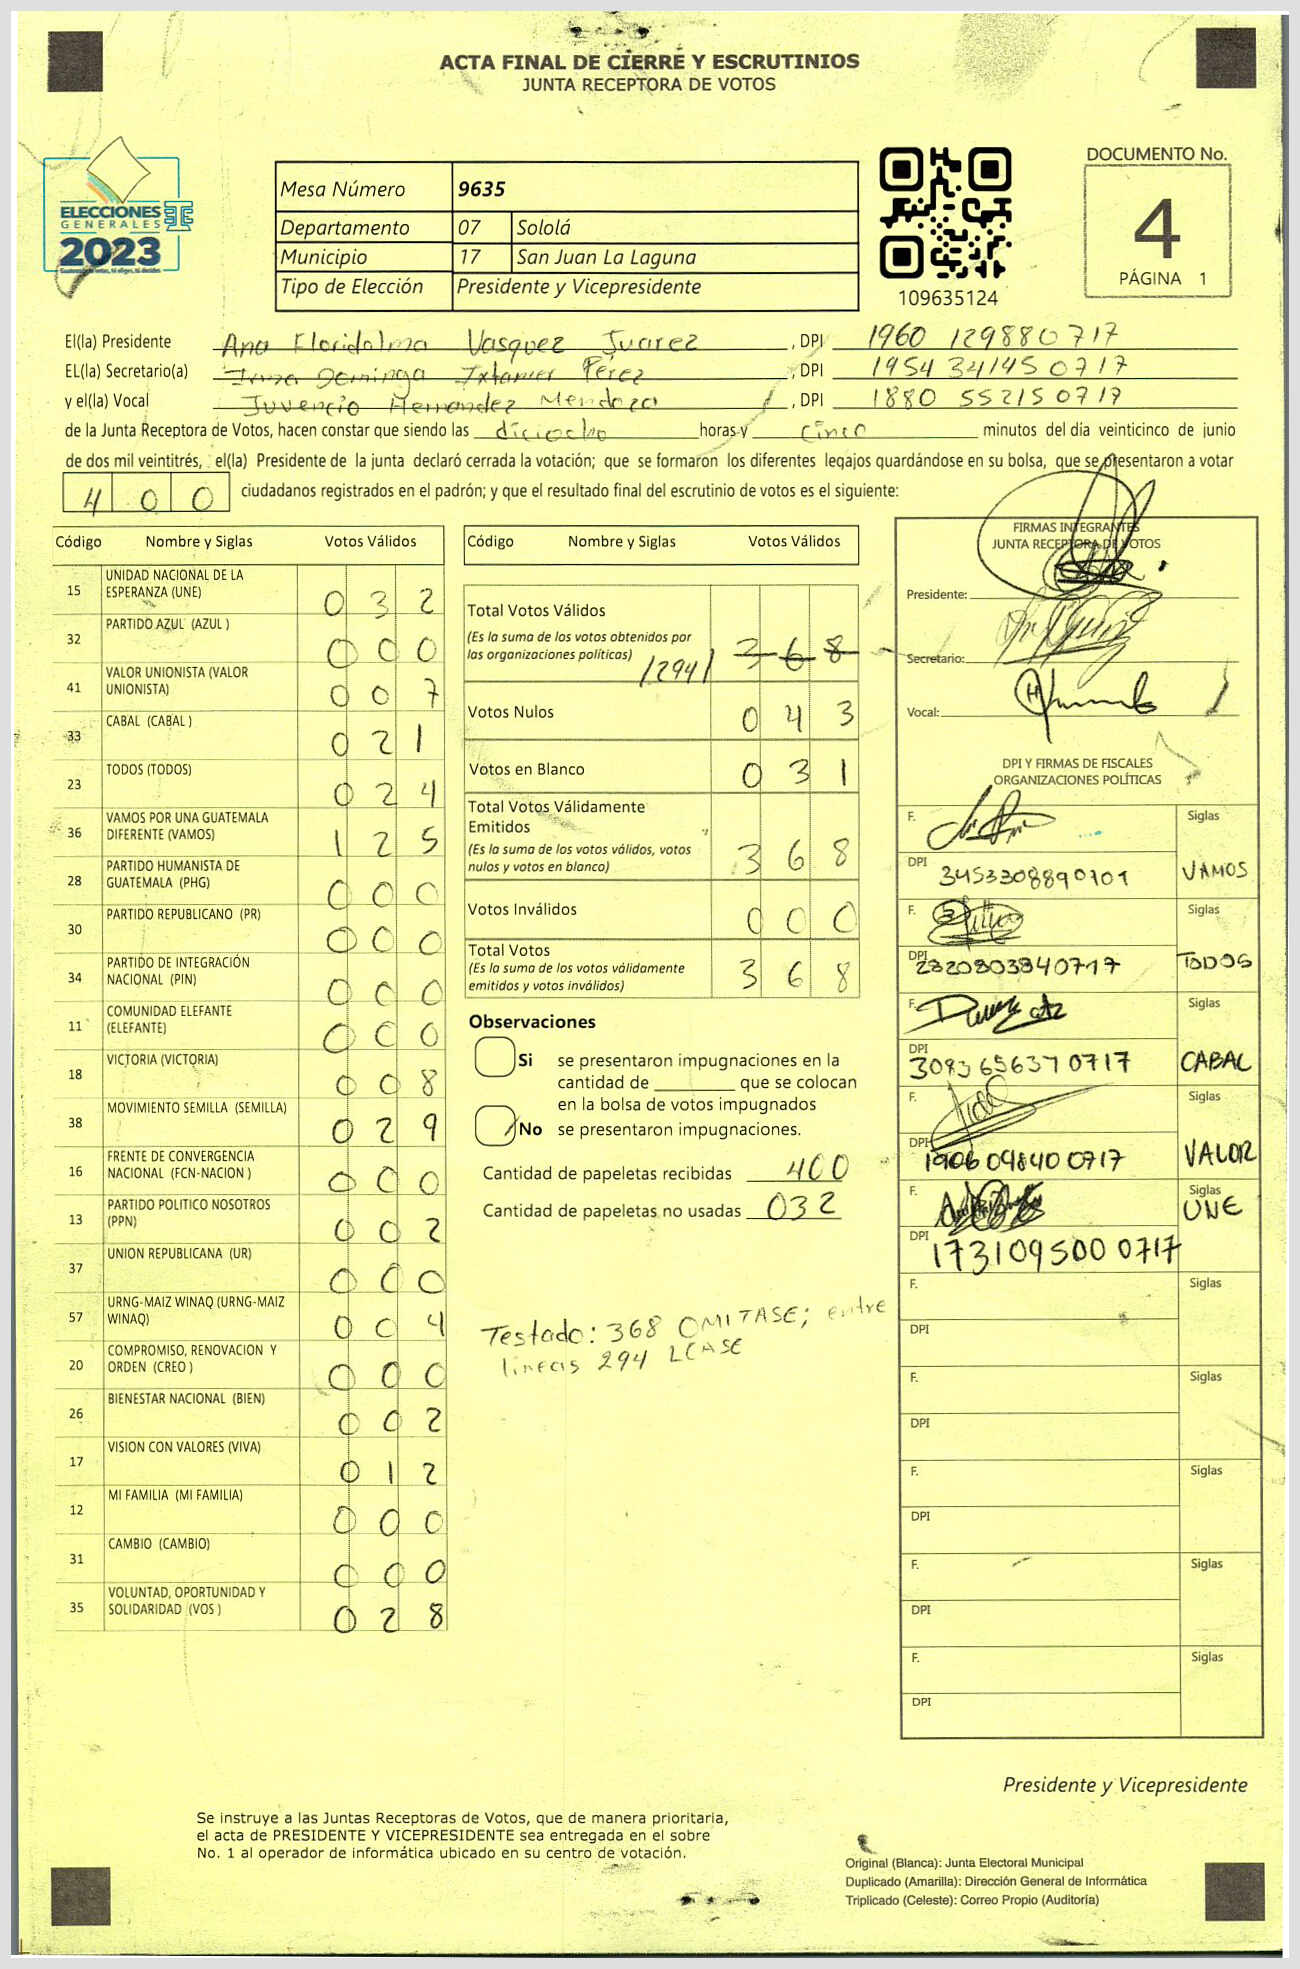 ACTA FINAL DE CIERRE Y ESCRUTINIOS
JUNTA RECEPTORA DE VOTOS
ELECCIONES
GENERALES
2023
Mesa Número 9635
Departamento 07 Sololá
Municipio 17 San Juan La Laguna
Tipo de Elección Presidente y Vicepresidente
109635124
DOCUMENTO No.
4
PÁGINA 1
El(la) Presidente Ana Floridalma Vasquez Juarez , DPI 1960 12988 0717
EL(la) Secretario(a) Irma Dominga Ixtamer Pérez , DPI 1954 34145 0717
y el(la) Vocal Juvencio Hernandez Mendoza , DPI 1880 55215 0717
de la Junta Receptora de Votos, hacen constar que siendo las dieciocho horas y cinco minutos del día veinticinco de junio
de dos mil veintitrés, el(la) Presidente de la junta declaró cerrada la votación; que se formaron los diferentes legajos guardándose en su bolsa, que se presentaron a votar
400 ciudadanos registrados en el padrón; y que el resultado final del escrutinio de votos es el siguiente:
Código Nombre y Siglas Votos Válidos
15 UNIDAD NACIONAL DE LA ESPERANZA (UNE) 032
32 PARTIDO AZUL (AZUL ) 000
41 VALOR UNIONISTA (VALOR UNIONISTA) 007
33 CABAL (CABAL ) 021
23 TODOS (TODOS) 024
36 VAMOS POR UNA GUATEMALA DIFERENTE (VAMOS) 125
28 PARTIDO HUMANISTA DE GUATEMALA (PHG) 000
30 PARTIDO REPUBLICANO (PR) 000
34 PARTIDO DE INTEGRACIÓN NACIONAL (PIN) 000
11 COMUNIDAD ELEFANTE (ELEFANTE) 000
18 VICTORIA (VICTORIA) 008
38 MOVIMIENTO SEMILLA (SEMILLA) 029
16 FRENTE DE CONVERGENCIA NACIONAL (FCN-NACION ) 000
13 PARTIDO POLITICO NOSOTROS (PPN) 002
37 UNION REPUBLICANA (UR) 000
57 URNG-MAIZ WINAQ (URNG-MAIZ WINAQ) 004
20 COMPROMISO, RENOVACION Y ORDEN (CREO ) 000
26 BIENESTAR NACIONAL (BIEN) 002
17 VISION CON VALORES (VIVA) 012
12 MI FAMILIA (MI FAMILIA) 000
31 CAMBIO (CAMBIO) 000
35 VOLUNTAD, OPORTUNIDAD Y SOLIDARIDAD (VOS ) 028
Código Nombre y Siglas Votos Válidos
Total Votos Válidos
(Es la suma de los votos obtenidos por
las organizaciones políticas) /294/ 368
Votos Nulos 043
Votos en Blanco 031
Total Votos Válidamente
Emitidos
(Es la suma de los votos válidos, votos
nulos y votos en blanco) 368
Votos Inválidos 000
Total Votos
(Es la suma de los votos válidamente
emitidos y votos inválidos) 368
Observaciones
Si se presentaron impugnaciones en la
cantidad de ________ que se colocan
en la bolsa de votos impugnados
No se presentaron impugnaciones.
Cantidad de papeletas recibidas 400
Cantidad de papeletas no usadas 032
Testado: 368 OMITASE; entre
lineas 294 LEASE
FIRMAS INTEGRANTES
JUNTA RECEPTORA DE VOTOS
Presidente:
Secretario:
Vocal:
DPI Y FIRMAS DE FISCALES
ORGANIZACIONES POLÍTICAS
F. Siglas
DPI 3453308890101 VAMOS
F. Siglas
DPI 2320803840717 TODOS
F. Siglas
DPI 3093 65637 0717 CABAL
F. Siglas
DPI 1906 09840 0717 VALOR
F. Siglas
DPI 1731095000717 UNE
F. Siglas
DPI
F. Siglas
DPI
F. Siglas
DPI
F. Siglas
DPI
F. Siglas
DPI
Presidente y Vicepresidente
Se instruye a las Juntas Receptoras de Votos, que de manera prioritaria,
el acta de PRESIDENTE Y VICEPRESIDENTE sea entregada en el sobre
No. 1 al operador de informática ubicado en su centro de votación.
Original (Blanca): Junta Electoral Municipal
Duplicado (Amarilla): Dirección General de Informática
Triplicado (Celeste): Correo Propio (Auditoría)